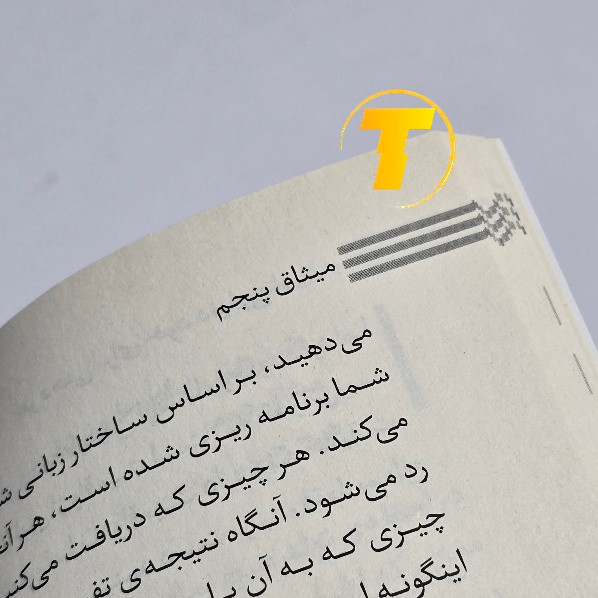 T
میثاق پنجم
می‌دهید، بر اساس ساختار زبانی
شما برنامه ریزی شده است، هر
می‌کند. هر چیزی که دریافت می‌کنید
رد می‌شود. آنگاه نتیجه‌ی
چیزی که به آن
اینگونه